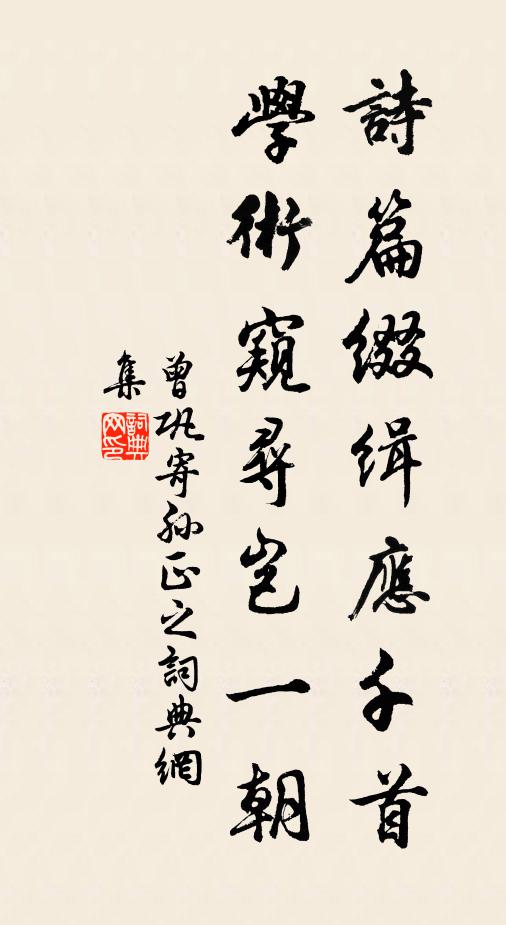 詩篇綴緝應千首
學術窺尋豈一朝
曾鞏寄孫正之詞典網
集
詞典网印